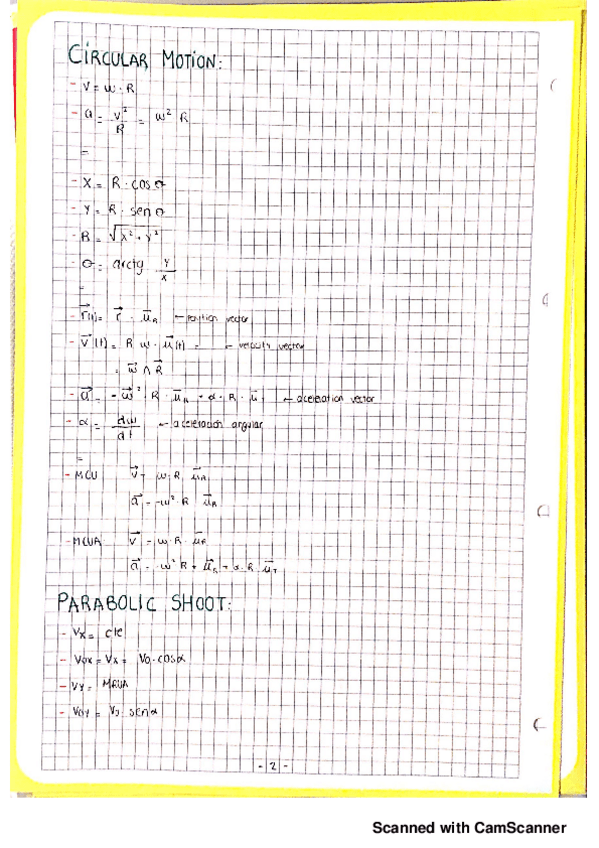 CIRCULAR MOTION:
- V = ω · R
- a = v²/R = ω² R
=
- X = R · cos θ
- Y = R · sen θ
- R = √x² + y²
- θ = arctg y/x
=
- r⃗(t) = r⃗ · μ⃗R ← position vector
- v⃗(t) = R ω · μ⃗(t) = ← velocity vector
= ω⃗ ∧ R⃗
- a⃗ = -ω⃗² · R · μ⃗R + α · R · μ⃗ ← aceleration vector
- α = dω/dt ← aceleración angular
=
- MCU v⃗ = ω · R μ⃗R
a⃗ = -ω² R μ⃗R
- MCUA v⃗ = ω · R · μ⃗R
a⃗ = -ω² R · μ⃗R + α · R · μ⃗T
PARABOLIC SHOOT:
- Vx = cte
- Vox = Vx = Vo · cosα
- VY = MRUA
- Voy = Vo · senα
- 2 -
Scanned with CamScanner